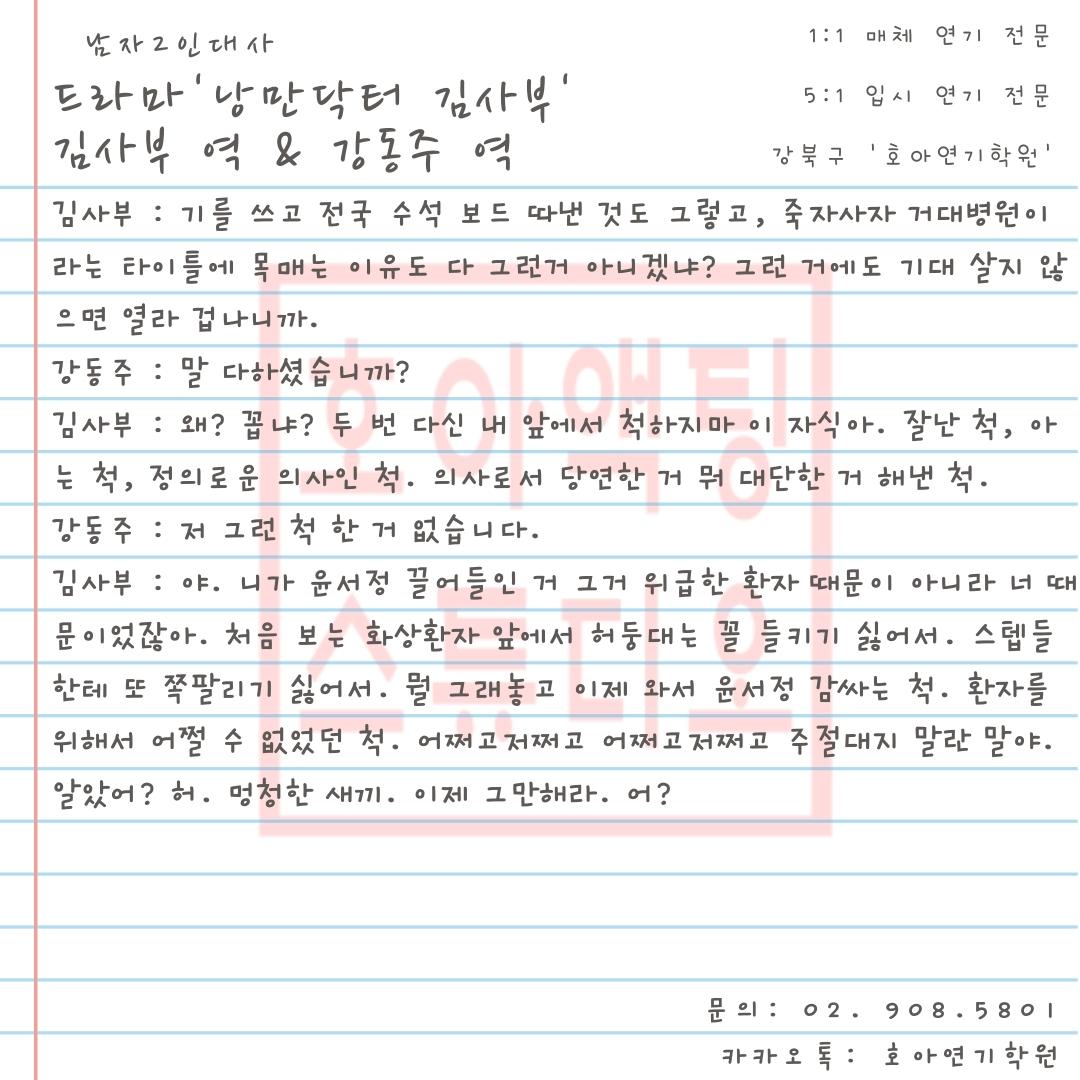 남자2인대사
드라마'낭만닥터 김사부'
김사부 역 & 강동주 역
1:1 매체 연기 전문
5:1 입시 연기 전문
강북구 '호아연기학원'
김사부 : 기를 쓰고 전국 수석 보드 따낸 것도 그렇고, 죽자사자 거대병원이
라는 타이틀에 목매는 이유도 다 그런거 아니겠냐? 그런 거에도 기대 살지 않
으면 열라 겁나니까.
강동주 : 말 다하셨습니까?
김사부 : 왜? 꼽냐? 두 번 다신 내 앞에서 척하지마 이 자식아. 잘난 척, 아
는 척, 정의로운 의사인 척. 의사로서 당연한 거 뭐 대단한 거 해낸 척.
강동주 : 저 그런 척 한 거 없습니다.
김사부 : 야. 니가 윤서정 끌어들인 거 그거 위급한 환자 때문이 아니라 너 때
문이었잖아. 처음 보는 화상환자 앞에서 허둥대는 꼴 들키기 싫어서. 스텝들
한테 또 쪽팔리기 싫어서. 뭘 그래놓고 이제 와서 윤서정 감싸는 척. 환자를
위해서 어쩔 수 없었던 척. 어쩌고저쩌고 어쩌고저쩌고 주절대지 말란 말야.
알았어? 허. 멍청한 새끼. 이제 그만해라. 어?
호아액팅
스튜디오
문의: 02. 908.5801
카카오톡: 호아연기학원